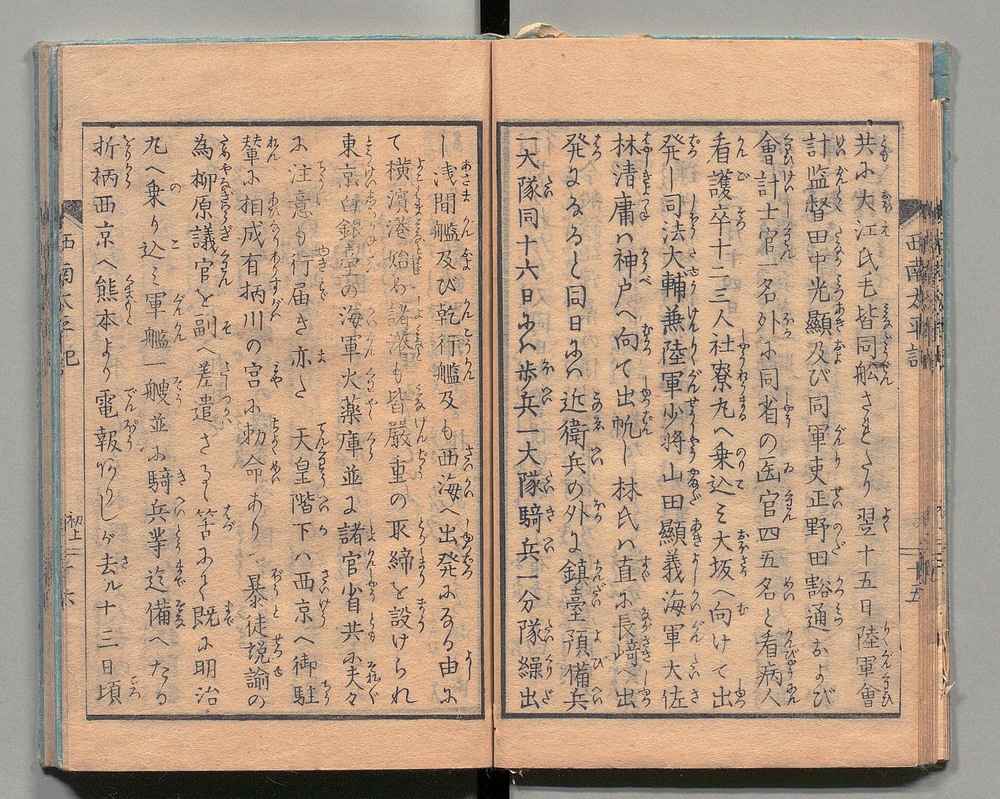 共に大江氏も皆同舩されたり翌十五日陸軍會
計監督田中光顯及び同軍吏正野田豁通および
會計士官一名外に同省の醫官四五名と看病人
看護卒十二三人社寮丸へ乗込ミ大坂へ向けて出
発し司法大輔兼陸軍少将山田顯義海軍大佐
林清庸ハ神戸へ向て出帆し林氏ハ直に長﨑へ出
発になると同日にハ近衛兵の外に鎮臺預備兵
一大隊同十六日にハ歩兵一大隊騎兵一分隊繰出
し浅間艦及び乾行艦及も西海へ出発になる由に
て横濱港始め諸港も皆嚴重の取締を設けられ
東京白銀臺の海軍火薬庫並に諸官省共に夫々
に注意も行届き亦た 天皇階下ハ西京へ御駐
輦に相成有栖川の宮に勅命あり 暴徒説諭の
為柳原議官を副へ差遣さるゝ筈にて既に明治
丸へ乗り込ミ軍艦一艘並に騎兵等迄備へたる
折柄西京へ熊本より電報ありしが去ル十三日頃
西南太平記
初上
二十六
西南太平記